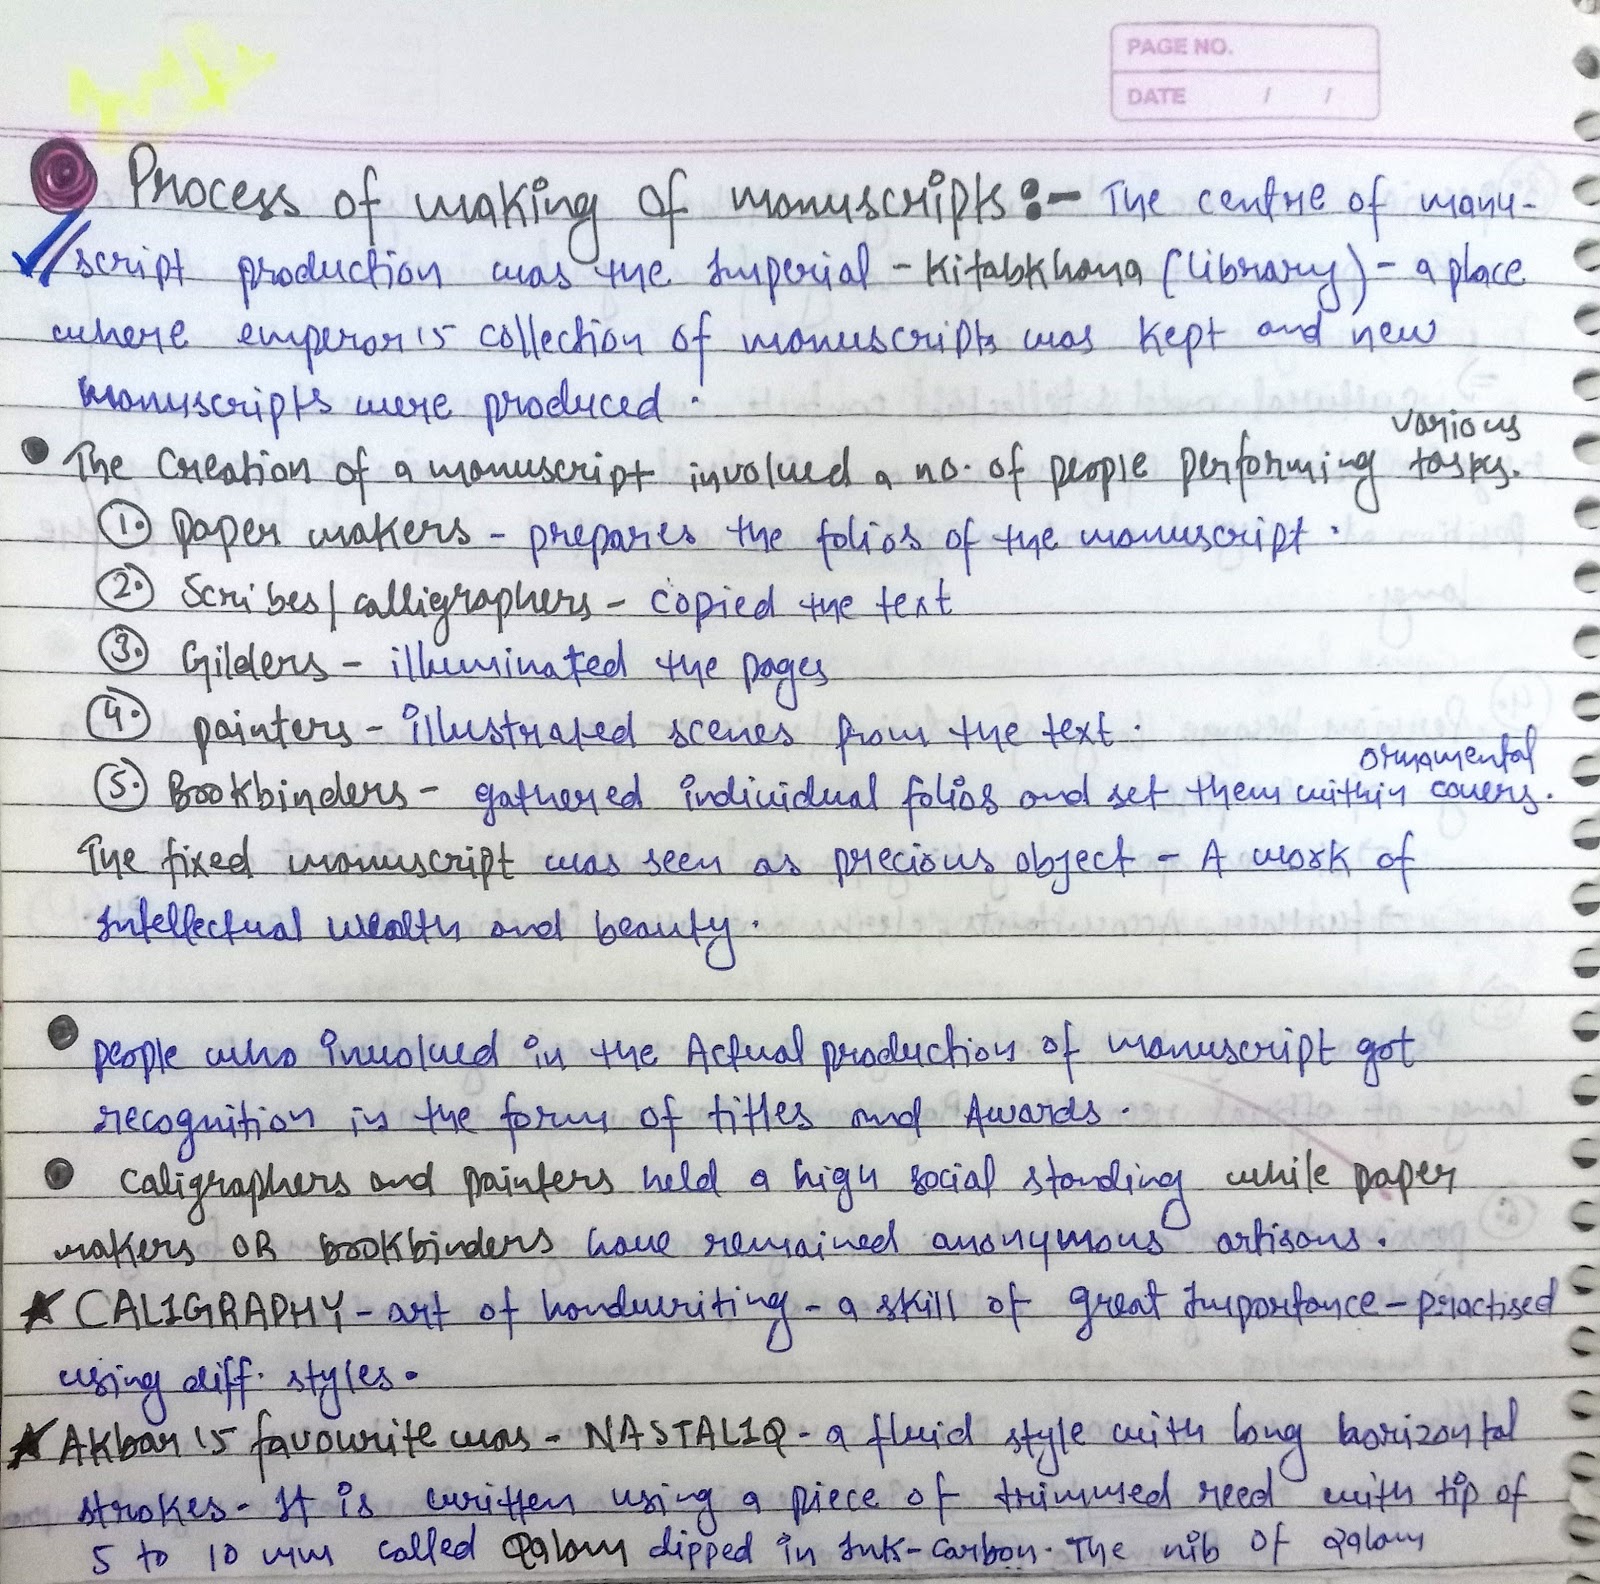 PAGE NO.
DATE / /
Process of making of manuscripts :- The centre of manu-
script production was the Imperial - Kitabkhana (library) - a place
where emperor's collection of manuscripts was kept and new
manuscripts were produced.
• The Creation of a manuscript involved a no. of people performing various tasks.
1. paper makers - prepares the folios of the manuscript.
2. Scribes/calligraphers - copied the text
3. Gilders - illuminated the pages
4. painters - illustrated scenes from the text.
5. Bookbinders - gathered individual folios and set them within ornamental covers.
The fixed manuscript was seen as precious object - A work of
Intellectual wealth and beauty.
• people who involved in the Actual production of manuscript got
recognition in the form of titles and Awards.
• Caligraphers and painters held a high social standing while paper
makers OR bookbinders have remained anonymous artisans.
★ CALIGRAPHY - art of handwriting - a skill of great Importance - practised
using diff. styles.
★ Akbar's favourite was - NASTALIQ - a fluid style with long horizontal
strokes - It is written using a piece of trimmed reed with tip of
5 to 10 mm called Qalam dipped in Ink-carbon. The nib of Qalam